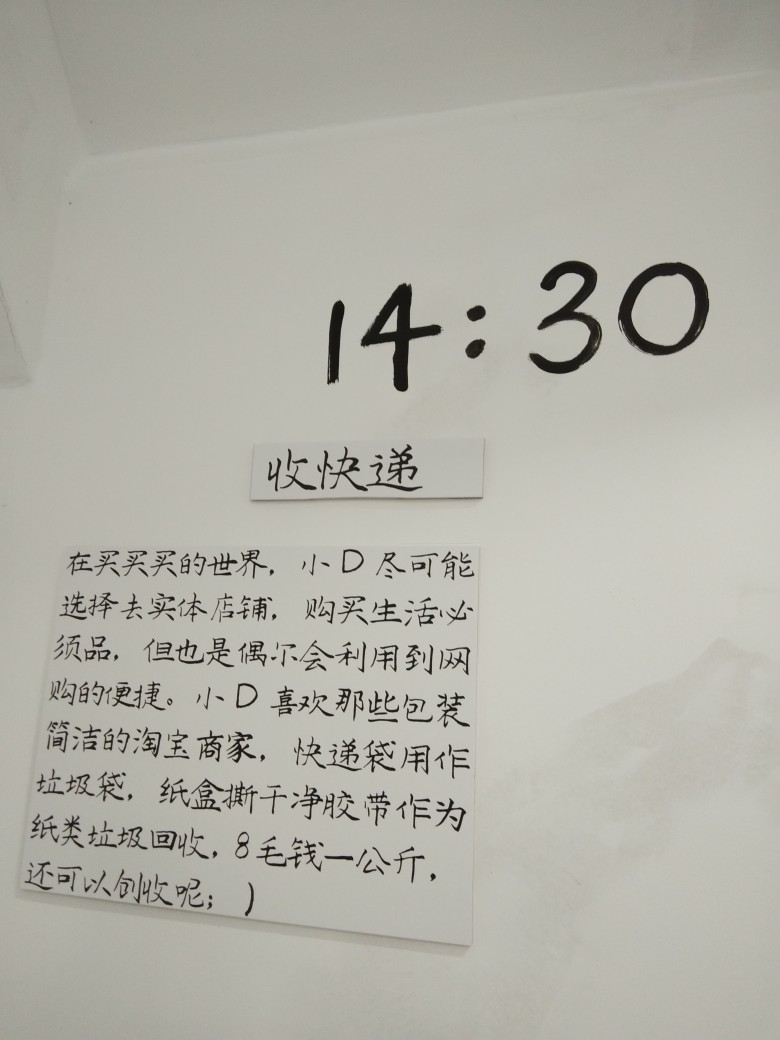 14:30
收快递
在买买买的世界，小D尽可能
选择去实体店铺，购买生活必
须品，但也是偶尔会利用到网
购的便捷。小D喜欢那些包装
简洁的淘宝商家，快递袋用作
垃圾袋，纸盒撕干净胶带作为
纸类垃圾回收，8毛钱一公斤，
还可以创收呢；）